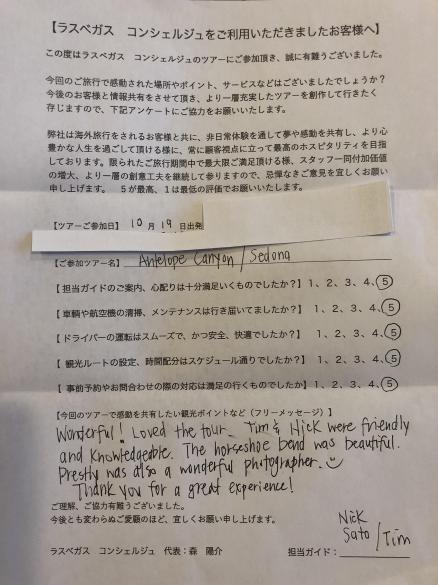 【ラスベガス　コンシェルジュをご利用いただきましたお客様へ】
この度はラスベガス　コンシェルジュのツアーにご参加頂き、誠に有難うございました。
今回のご旅行で感動された場所やポイント、サービスなどはございましたでしょうか？
今後のお客様と情報共有をさせて頂き、より一層充実したツアーを創作して行きたく
存じますので、下記アンケートにご協力をお願いいたします。
弊社は海外旅行をされるお客様と共に、非日常体験を通して夢や感動を共有し、より心
豊かな人生を過ごして頂ける様に、常に顧客視点に立って最高のホスピタリティを目指
しております。限られたご旅行期間中で最大限ご満足頂ける様、スタッフ一同付加価値
の増大、より一層の創意工夫を継続して参りますので、忌憚なきご意見を宜しくお願い
申し上げます。　5が最高、1は最低の評価でお願いいたします。
【ツアーご参加日】 10 月 19 日出発
【ご参加ツアー名】 Antelope Canyon / Sedona
【 担当ガイドのご案内、心配りは十分満足いくものでしたか？】 1、2、3、4、5
【 車輌や航空機の清掃、メンテナンスは行き届いてましたか？】 1、2、3、4、5
【 ドライバーの運転はスムーズで、かつ安全、快適でしたか？】 1、2、3、4、5
【 観光ルートの設定、時間配分はスケジュール通りでしたか？】 1、2、3、4、5
【 事前予約やお問合わせの際の対応は満足の行くものでしたか】 1、2、3、4、5
【今回のツアーで感動を共有したい観光ポイントなど（フリーメッセージ）】
Wonderful! Loved the tour. Tim & Nick were friendly
and knowledgeable. The horseshoe bend was beautiful.
was also a wonderful photographer.
Thank you for a great experience!
ご理解、ご協力有難うございました。
今後とも変わらぬご愛顧のほど、宜しくお願い申し上げます。
ラスベガス　コンシェルジュ　代表：森　陽介
担当ガイド： Nick Sato / Tim